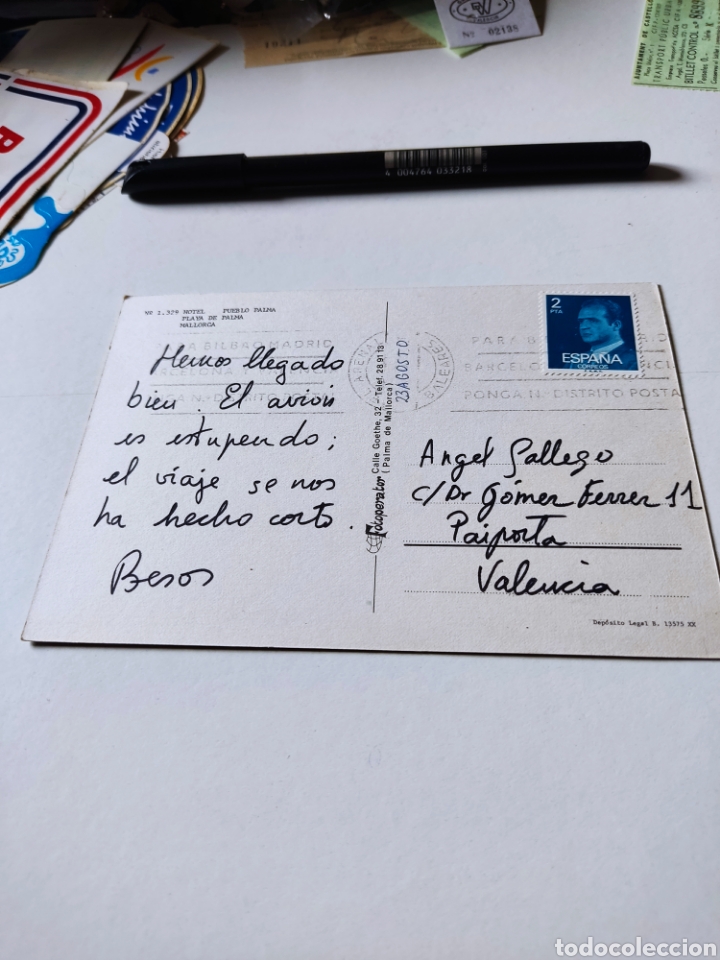 Nº 02138
10211
AJUNTAMENT DE CASTELLO
TRANSPORT PUBLIC URBA
BITLLET CONTROL
4 004764 033218
Nº 2.329 HOTEL PUEBLO PALMA
PLAYA DE PALMA
MALLORCA
PARA BILBAO MADRID
BARCELONA
PONGA N.-DISTRITO POSTAL
Hemos llegado
bien. El avión
es estupendo;
el viaje se nos
ha hecho corto.
Besos
Fotoperator Calle Goethe, 32 - Telef. 28 91 13
(Palma de Mallorca)
ARENAL
23 AGOSTO
BALEARES
2
PTA
ESPAÑA
CORREOS
PARA
BARCELONA
PONGA N.-DISTRITO POSTA
Angel Gallego
c/Dr Gómer Ferrer 11
Paiporta
Valencia
Depósito Legal B. 13575 XX
todocoleccion